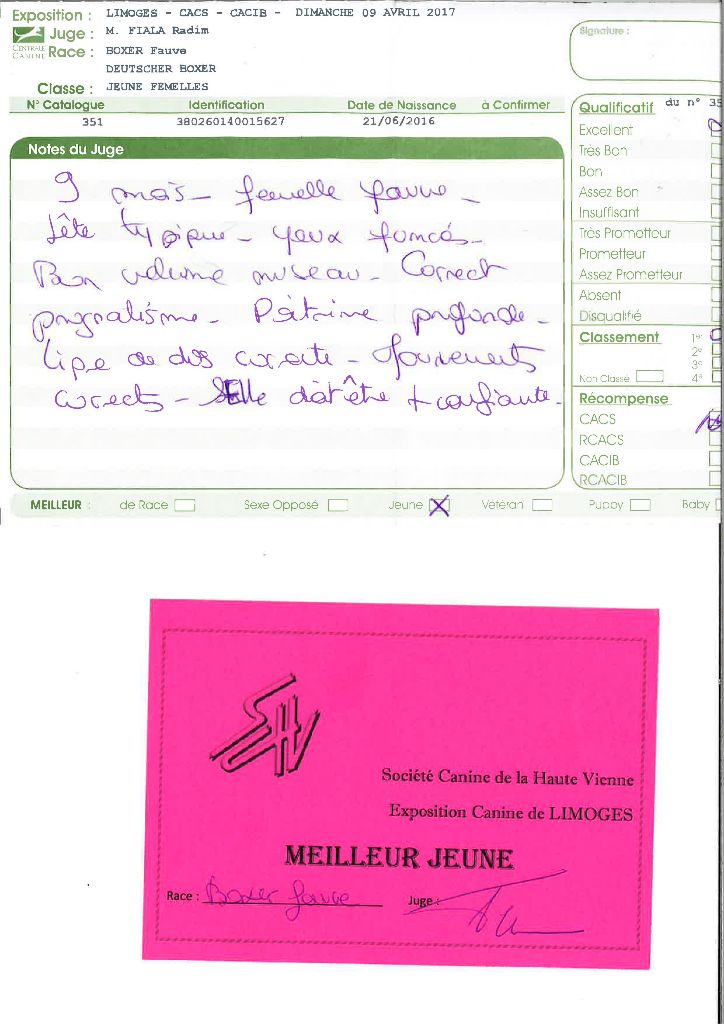 Exposition : LIMOGES - CACS - CACIB - DIMANCHE 09 AVRIL 2017
Juge : M. FIALA Radim
CENTRALE CANINE
Race : BOXER Fauve
DEUTSCHER BOXER
Classe : JEUNE FEMELLES
N° Catalogue Identification Date de Naissance à Confirmer
351 380260140015627 21/06/2016
Notes du Juge
9 mois - femelle fauve -
Tête typique - yeux foncés -
Bon volume museau - Correct
prognatisme - Poitrine profonde -
Ligne de dos correcte - Mouvements
corrects - Elle doit être + confiante -
Signature :
Qualificatif du n° 35
Excellent
Très Bon
Bon
Assez Bon
Insuffisant
Très Prometteur
Prometteur
Assez Prometteur
Absent
Disqualifié
Classement 1er
2e
3e
Non Classé 4e
Récompense
CACS
RCACS
CACIB
RCACIB
MEILLEUR : de Race Sexe Opposé Jeune X Vétéran Puppy Baby
SHV
Société Canine de la Haute Vienne
Exposition Canine de LIMOGES
MEILLEUR JEUNE
Race : Boxer fauve Juge :